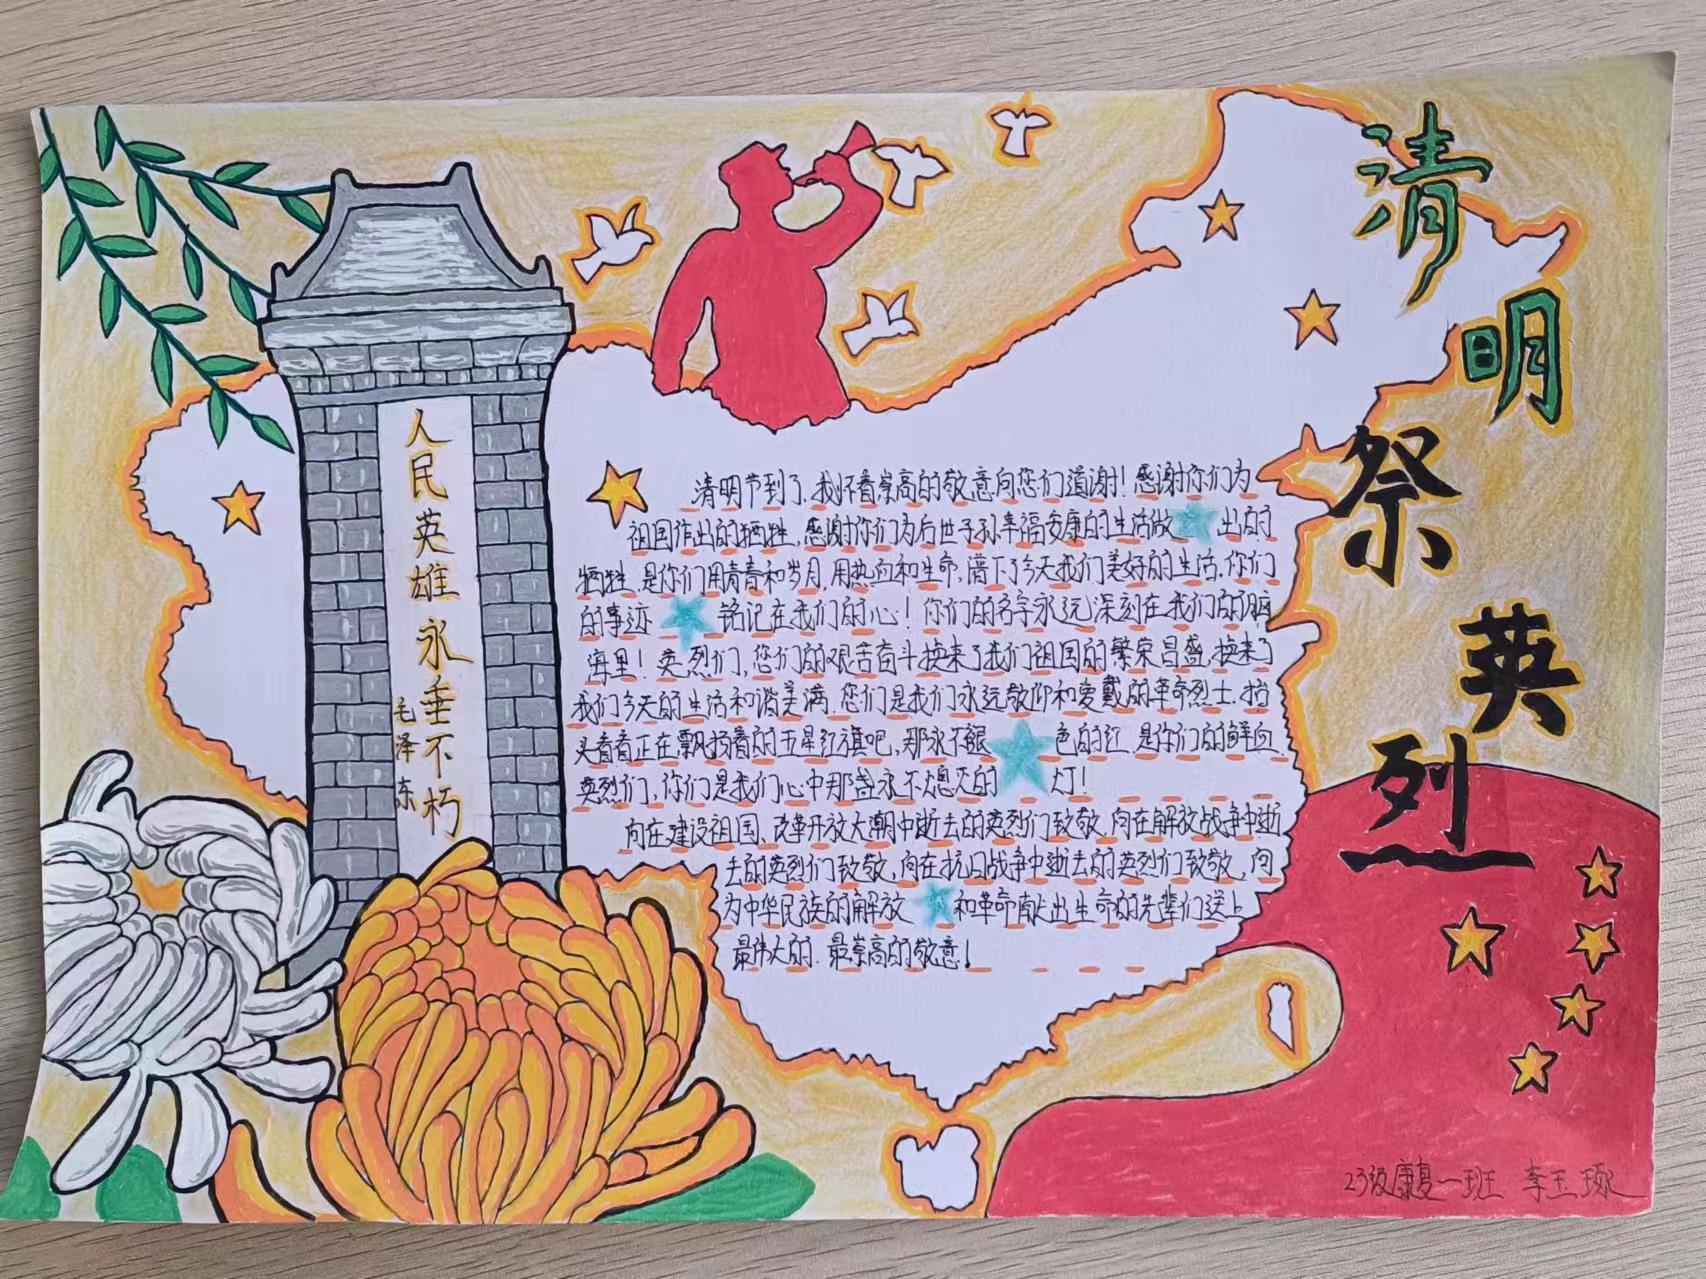 清明
祭英烈
人民英雄永垂不朽
毛泽东
清明节到了,我怀着崇高的敬意向您们道谢!感谢你们为
祖国作出的牺牲,感谢你们为后世子孙幸福安康的生活做出的
牺牲,是你们用青春和岁月,用热血和生命,谱下了今天我们美好的生活,你们
的事迹铭记在我们的心!你们的名字永远深刻在我们的脑
海里!英烈们,您们的艰苦奋斗换来了我们祖国的繁荣昌盛,换来了
我们今天的生活和谐美满.您们是我们永远敬仰和爱戴的革命烈士,抬
头看看正在飘扬着的五星红旗吧,那永不褪色的红,是你们的鲜血.
英烈们,你们是我们心中那盏永不熄灭的灯!
向在建设祖国、改革开放大潮中逝去的英烈们致敬,向在解放战争中逝
去的英烈们致敬,向在抗日战争中逝去的英烈们致敬,向
为中华民族的解放和革命献出生命的先辈们送上
最伟大的、最崇高的敬意!
23级康复一班 李玉琢